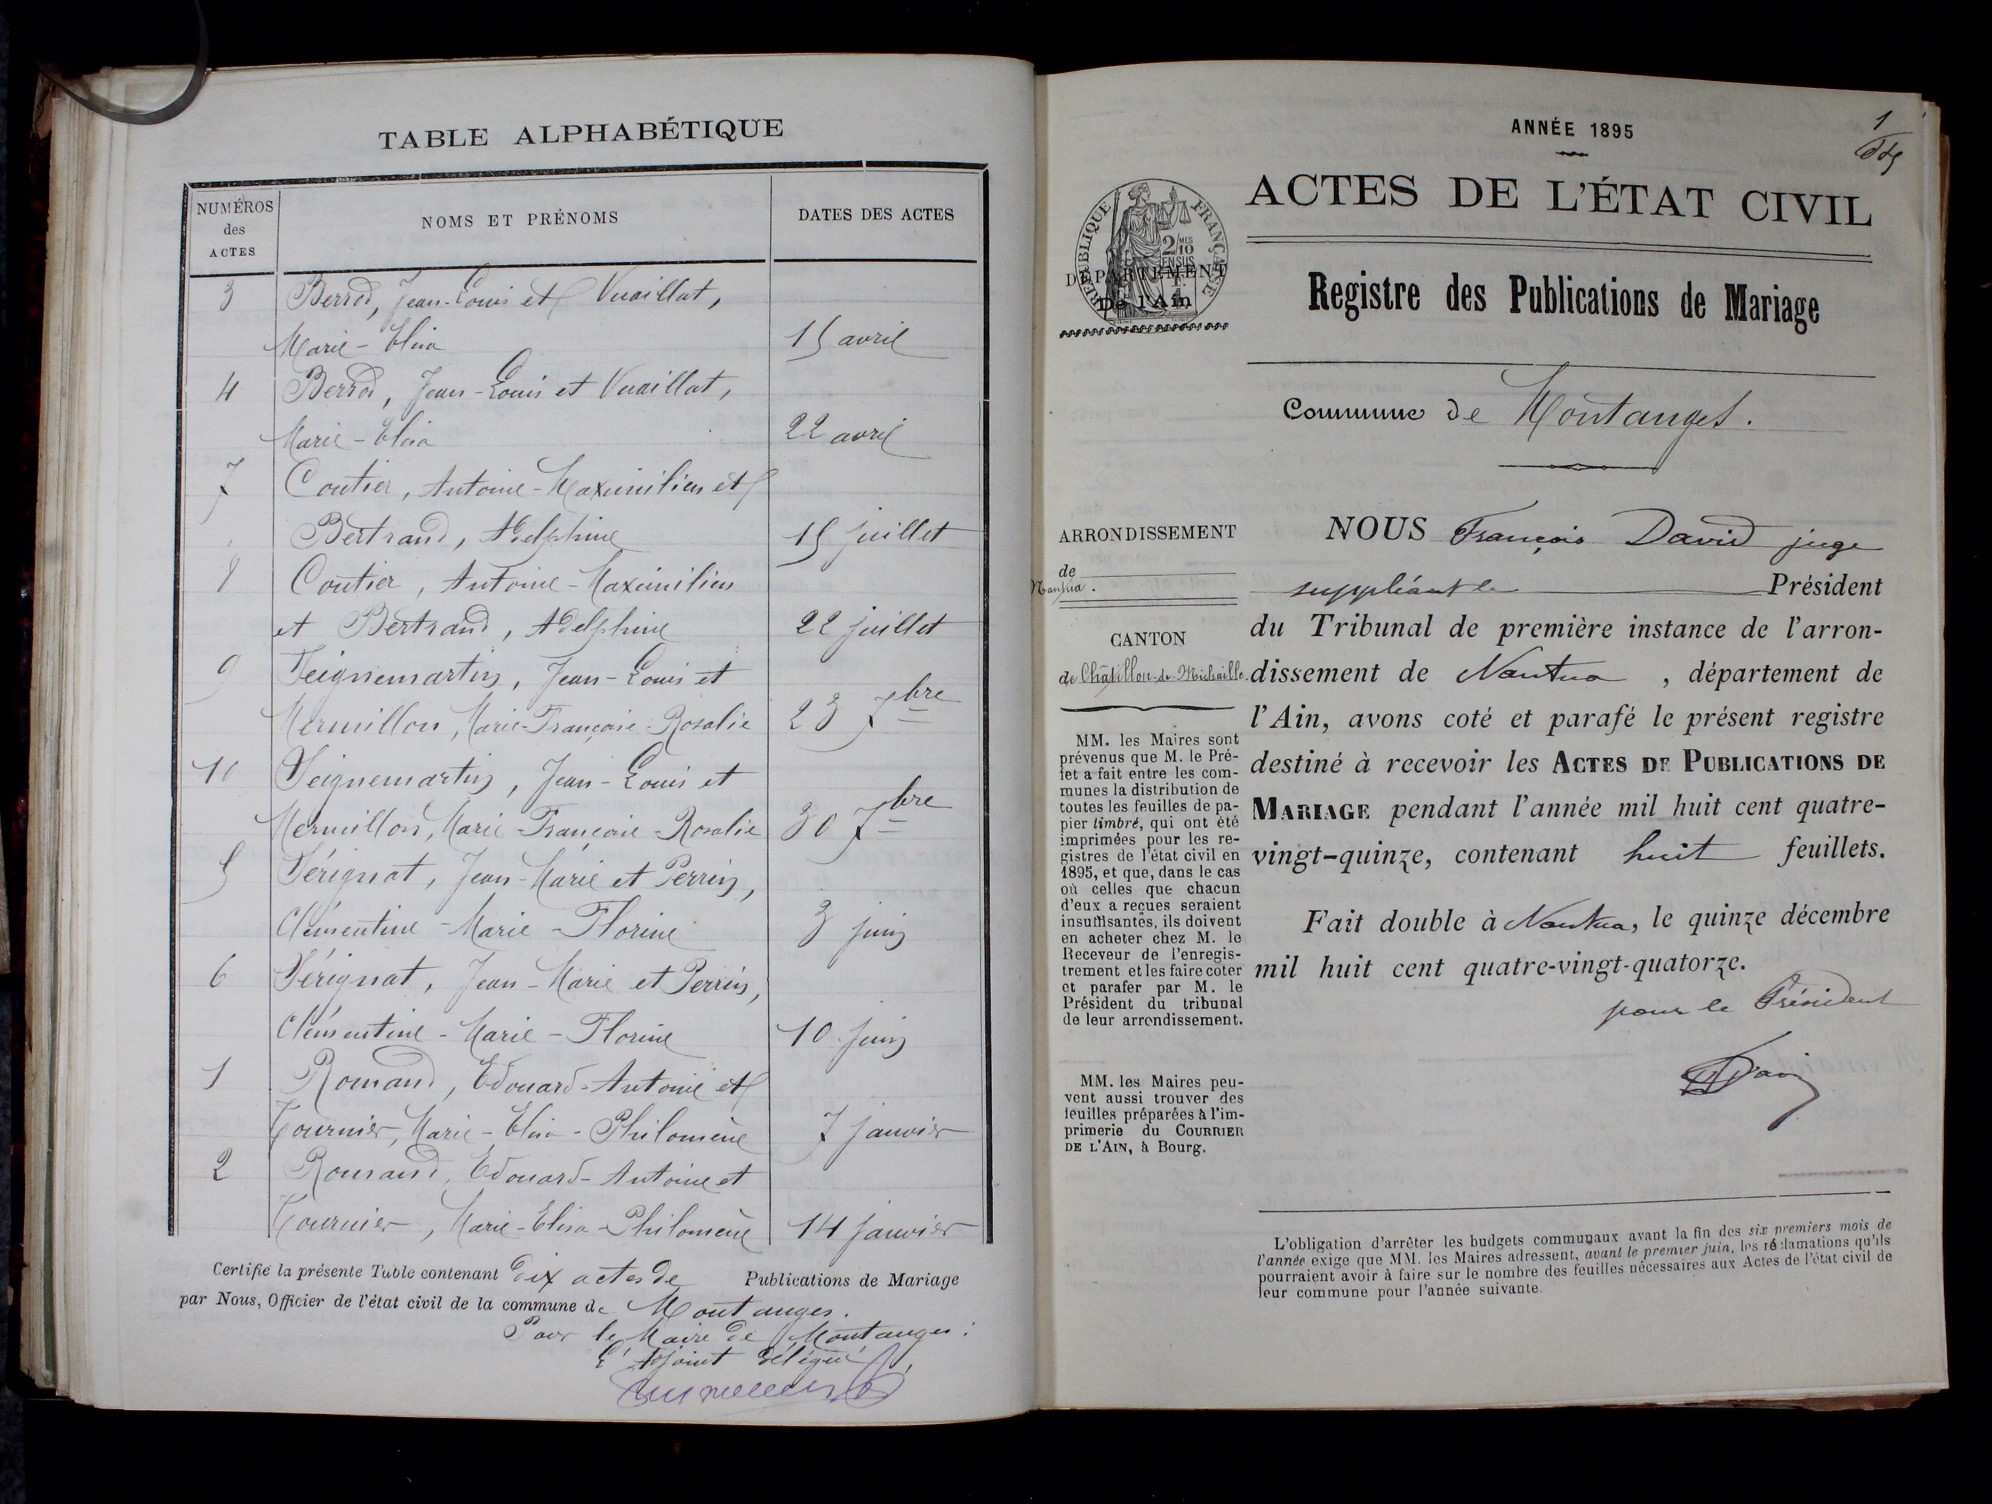 TABLE ALPHABÉTIQUE
NUMÉROS des ACTES
NOMS ET PRÉNOMS
DATES DES ACTES
3 Berrod, Jean-Louis et Vuaillat,
Marie-Elisa 15 avril
4 Berrod, Jean-Louis et Vuaillat,
Marie-Elisa 22 avril
7 Coutier, Antoine-Maximilien et
Bertrand, Adelphine 15 juillet
8 Coutier, Antoine-Maximilien
et Bertrand, Adelphine 22 juillet
9 Seignemartin, Jean-Louis et
Mermillon, Marie-Françoise-Rosalie 23 7bre
10 Seignemartin, Jean-Louis et
Mermillon, Marie-Françoise-Rosalie 30 7bre
5 Sérignat, Jean-Marie et Perrin,
Clémentine-Marie-Florine 3 juin
6 Sérignat, Jean-Marie et Perrin,
Clémentine-Marie-Florine 10 juin
1 Romand, Edouard-Antoine et
Tournier, Marie-Elisa-Philomène 7 janvier
2 Romand, Edouard-Antoine et
Tournier, Marie-Elisa-Philomène 14 janvier
Certifié la présente Table contenant dix actes de Publications de Mariage
par Nous, Officier de l'état civil de la commune de Montanges.
Pour le Maire de Montanges:
L'adjoint délégué,
1
ANNÉE 1895
ACTES DE L'ÉTAT CIVIL
RÉPUBLIQUE FRANÇAISE
2/10 EN SUS
DÉPARTEMENT
De l'Ain
Registre des Publications de Mariage
Commune de Montanges.
ARRONDISSEMENT
de
Nantua.
CANTON
de Châtillon-de-Michaille.
MM. les Maires sont
prévenus que M. le Pré-
fet a fait entre les com-
munes la distribution de
toutes les feuilles de pa-
pier timbré, qui ont été
imprimées pour les re-
gistres de l'état civil en
1895, et que, dans le cas
où celles que chacun
d'eux a reçues seraient
insuffisantes, ils doivent
en acheter chez M. le
Receveur de l'enregis-
trement et les faire coter
et parafer par M. le
Président du tribunal
de leur arrondissement.
MM. les Maires peu-
vent aussi trouver des
feuilles préparées à l'im-
primerie du COURRIER
DE L'AIN, à Bourg.
NOUS François David juge
suppléant le Président
du Tribunal de première instance de l'arron-
dissement de Nantua, département de
l'Ain, avons coté et parafé le présent registre
destiné à recevoir les ACTES DE PUBLICATIONS DE
MARIAGE pendant l'année mil huit cent quatre-
vingt-quinze, contenant huit feuillets.
Fait double à Nantua, le quinze décembre
mil huit cent quatre-vingt-quatorze.
pour le Président
L'obligation d'arrêter les budgets communaux avant la fin des six premiers mois de
l'année exige que MM. les Maires adressent, avant le premier juin, les réclamations qu'ils
pourraient avoir à faire sur le nombre des feuilles nécessaires aux Actes de l'état civil de
leur commune pour l'année suivante.